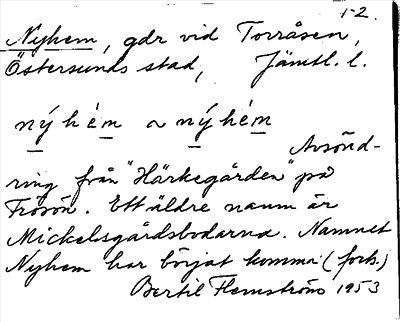 1-2.
Nyhem, gdr vid Torråsen,
Östersunds stad, Jämtl. l.
nýhém ~ nýhém
Avsönd-
ring från "Härkegården" på
Frösön. Ett äldre namn är
Mickelsgårdsbodarna. Namnet
Nyhem har börjat komma (forts.)
Bertil Flemström 1953